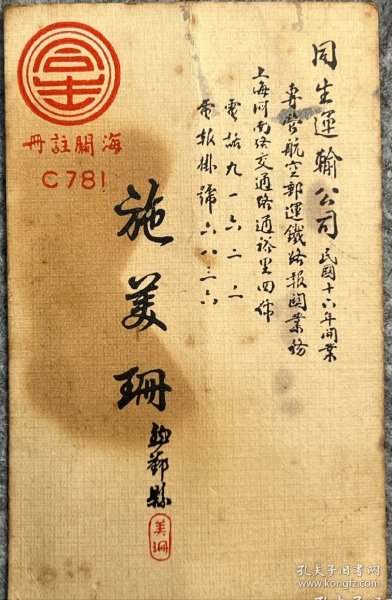 同生運輸公司 民國十六年開業
專營航空郵運鐵路報關業務
上海河南路交通路通裕里四號
電話九一六二二
電報掛號六八三六
施美珊 鄞縣
美珊
海關註冊
C781
孔夫子旧书网
www.kongfz.com